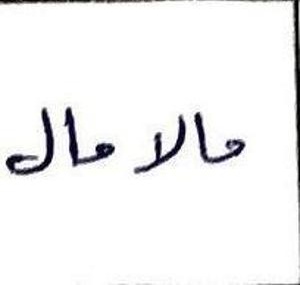 مالا مال